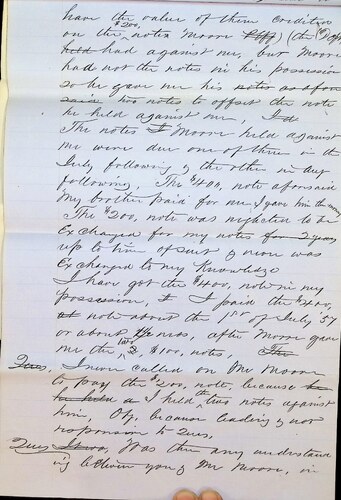 have the value of them credited
on the $200, notes Moore Plff) (the Dft
held had against me, but Moore
had not the notes in his possession
so he gave me his notes as afore
said two notes to offset the note
he held against me, I d
The notes I Moore held against
me were due one of them in the
July following & the other in
following, The $400, note aforesaid
my brother paid for me I gave him the money
The $200, note was neglected to be
Exchanged for my notes for 2 years
up to time of suit & never was
Exchanged to my Knowledge
I have got the $400, note in my
possession, & I paid the $400,
at note about the 1st of July '57
or about mos, after Moore gave
me the two $100, notes, The
Ques, I never called on Mr Moore
to pay the $200, note, because he
he held a I held the two notes against
him, Obj, because leading & not
responsive to Ques,
Ques Was there any understand
ing between you & Mr Moore, in